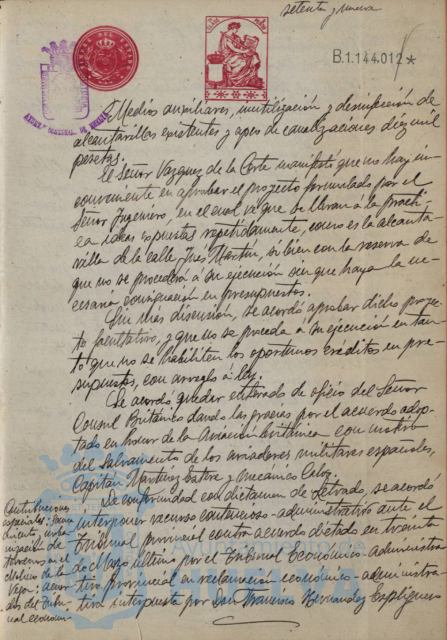 setenta y nueve
B.1.144.012*
Medios auxiliares, inutilización y desinfección de
alcantarillas existentes y apeos de canalizaciones diez mil
pesetas.
El Señor Vazquez de la Corte manifestó que no hay in-
conveniente en aprobar el proyecto formulado por el
Señor Ingeniero, en el cual ve que se llevan a la prácti-
ca ideas expuestas repetidamente, como es la alcanta
rilla de la calle Inés Martín, si bien con la reserva de
que no se procederá á su ejecución sin que haya la ne-
cesaria consignación en presupuestos.
Sin más discusión, se acordó aprobar dicho proyec-
to facultativo, y que no se proceda á su ejecución en tan-
to que no se habiliten los oportunos créditos en pre-
supuestos, con arreglo á ley.
Se acordó quedar enterado de oficio del Señor
Consul Británico dando las gracias por el acuerdo adop-
tado en honor de la Aviación británica con motivo
del salvamento de los aviadores militares españoles,
Capitán Martínez y Mecánico
De conformidad con dictamen de Letrado, se acordó
interponer recurso contencioso-administrativo ante el
Tribunal provincial contra acuerdo dictado en treinta
de Mayo último por el Tribunal Económico-administra
tivo provincial en reclamación económico-administra
tiva interpuesta por Don Francisco Hernandez
Contribuciones
especiales:
de
Terrenos en el
Viejo:
dos del Tribu-
nal económi-